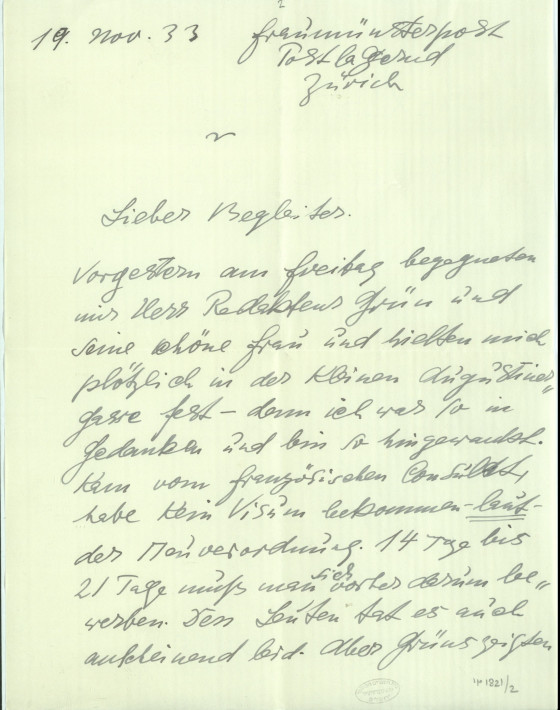 2
19. Nov. 33 Fraumünsterpost
Postlagernd
Zürich
Lieber Begleiter.
Vorgestern am Freitag begegneten
mir Herr Redakteur Grün und
seine schöne Frau und hielten mich
plötzlich in der kleinen Augustiner„
gasse fest – denn ich war so in
Gedanken und bin so hingewankt.
Kam vom französischen Consulat,
habe kein Visum bekommen – laut –
der Neuverordnung. 14 Tage bis
21 Tage muß man sich vorher darum be„
werben. Den Leuten tat es auch
anscheinend leid. Aber Grüns zeigten
1821/2